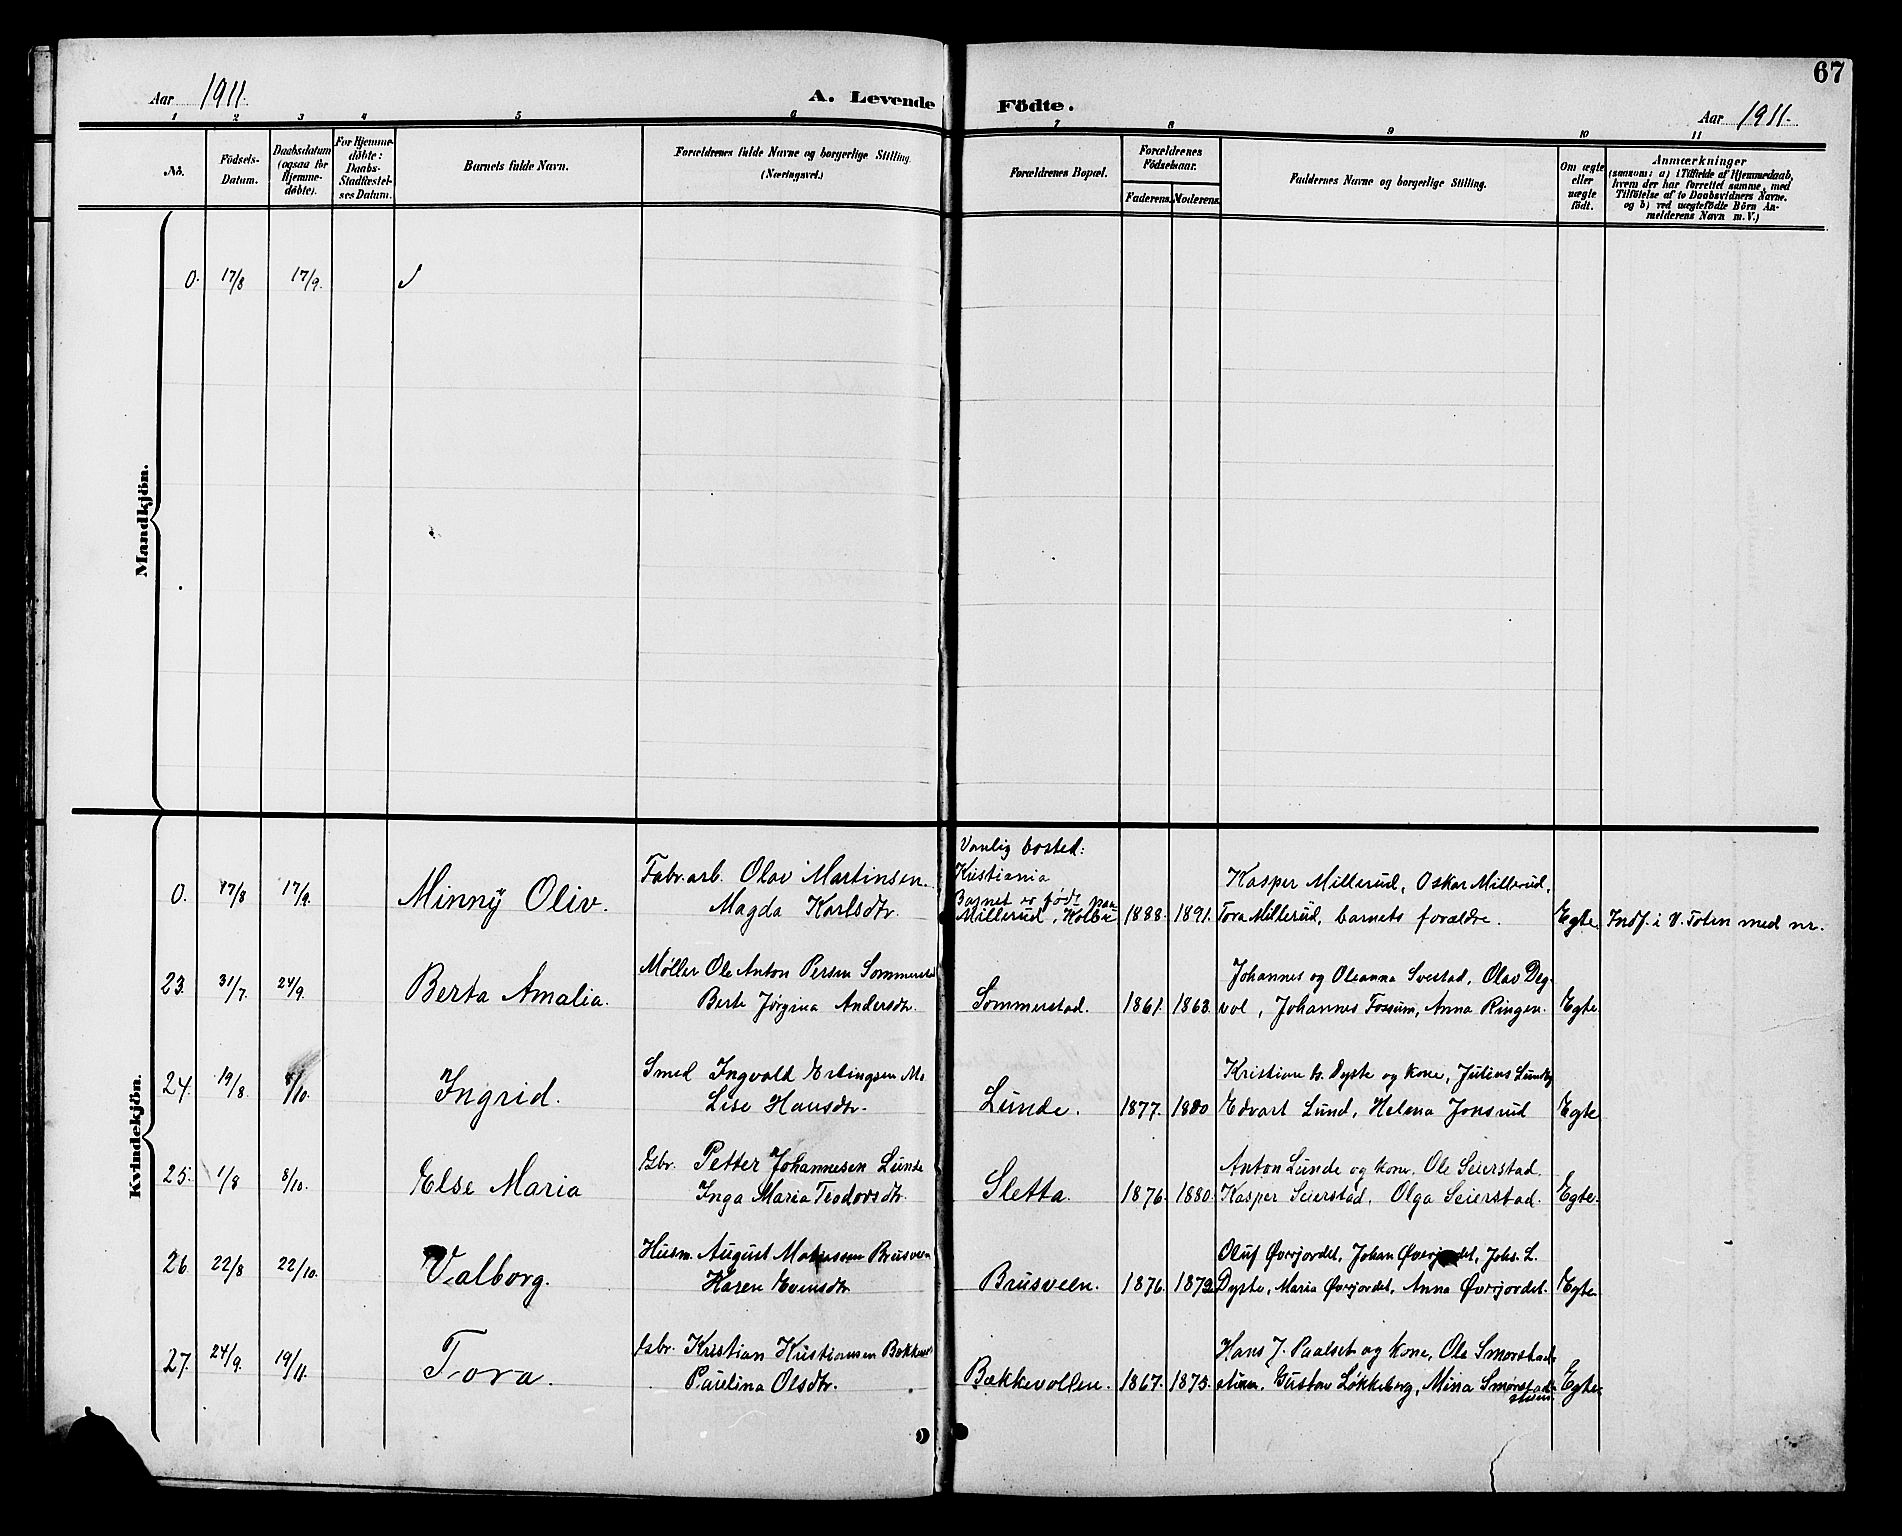 67
Aar 1911.
A. Levende Födte.
Aar 1911.
1 2 3 4 5 6 7 8 9 10 11
No.
Födsels-Datum.
Daabsdatum (ogsaa for Hjemmedöbte).
For Hjemmedöbte: Daabs-Stadfæstelses Datum.
Barnets fulde Navn.
Forældrenes fulde Navne og borgerlige Stilling. (Næringsvei.)
Forældrenes Bopæl.
Forældrenes Födselsaar.
Faderens. Moderens.
Faddernes Navne og borgerlige Stilling.
Om ægte eller uægte födt.
Anmærkninger
(saasom: a) i Tilfælde af Hjemmedaab,
hvem der har forrettet samme, med
Tilföielse af to Daabsvidners Navne.
og b) ved uægtefödte Börn An-
melderens Navn m. V.)
Mandkjön.
0. 17/8 17/9.
Kvindekjön.
0. 17/8 17/9. Minny Oliv. Fabr.arb. Olav Martinsen.
Magda Karlsdtr.
Vanlig bosted:
Kristiania
Barnet er födt paa
Millerud, Kolbu 1888. 1891.
Kasper Millerud, Oskar Millerud,
Tora Millerud, barnets forældre. Egte Indf. i V. Toten med nr.
23. 31/7. 24/9. Berta Amalia. Møller Ole Anton Persen Sommerstad
Berte Jørgina Andersdtr. Sommerstad. 1861. 1863.
Johannes og Oleanna Svestad, Olav Deg-
vol, Johannes Fossum, Anna Ringen. Egte
24. 19/8. /10. Ingrid. Smed Ingvald Erlingsen Mo
Lise Hansdtr. Lunde. 1877. 1880
Kristian H. Dyste og kone, Julius Lundby
Edvart Lund, Helena Jonsrud Egte
25. 1/8 8/10. Else Maria Gbr. Petter Johannesen Lunde
Inga Maria Teodorsdtr. Sletta. 1876. 1880.
Anton Lunde og kone, Ole Seierstad.
Kasper Seierstad, Olga Seierstad. Egte.
26. 22/8 22/10. Valborg. Husm. August Brusveen
Karen Evensdtr. Brusveen. 1876.
Oluf Øverjordet, Johan Øverjordet, Johs. L.
Dyste, Maria Øverjordet, Anna Øverjordet. Egte
27. 24/9. 19/11. Tora. Gbr. Kristian Kristiansen
Paulina Olsdtr. Bækkevollen. 1867. 1875.
Hans J. Paalset og kone, Ole Smørstad-
stuen. Gustav Løkkeberg, Mina Smørstad-
stuen. Egte